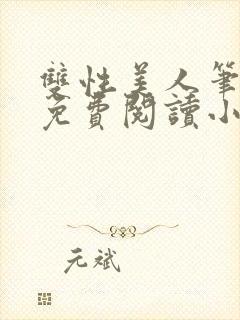 雙性美人筆
免費閱讀小
元斌